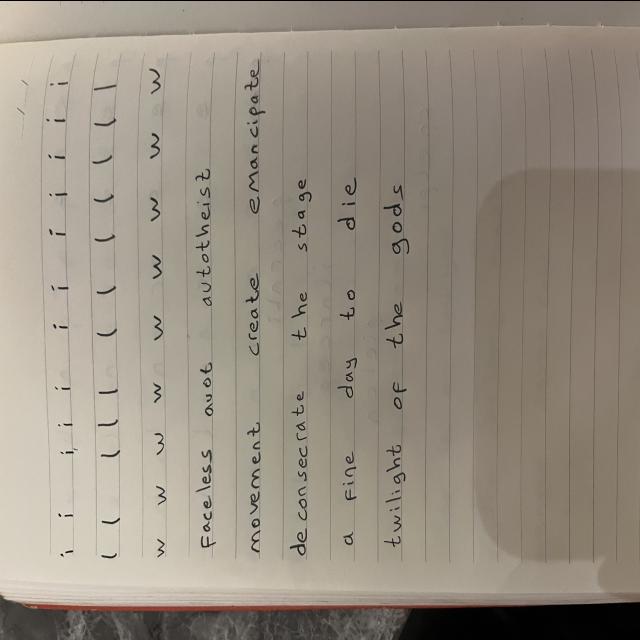 i i i i i i i i i i i
l l l l l l l l l l l
w w w w w w w w w
Faceless autotheist
movement create emancipate
deconsecrate the stage
a fine day to die
twilight of the gods